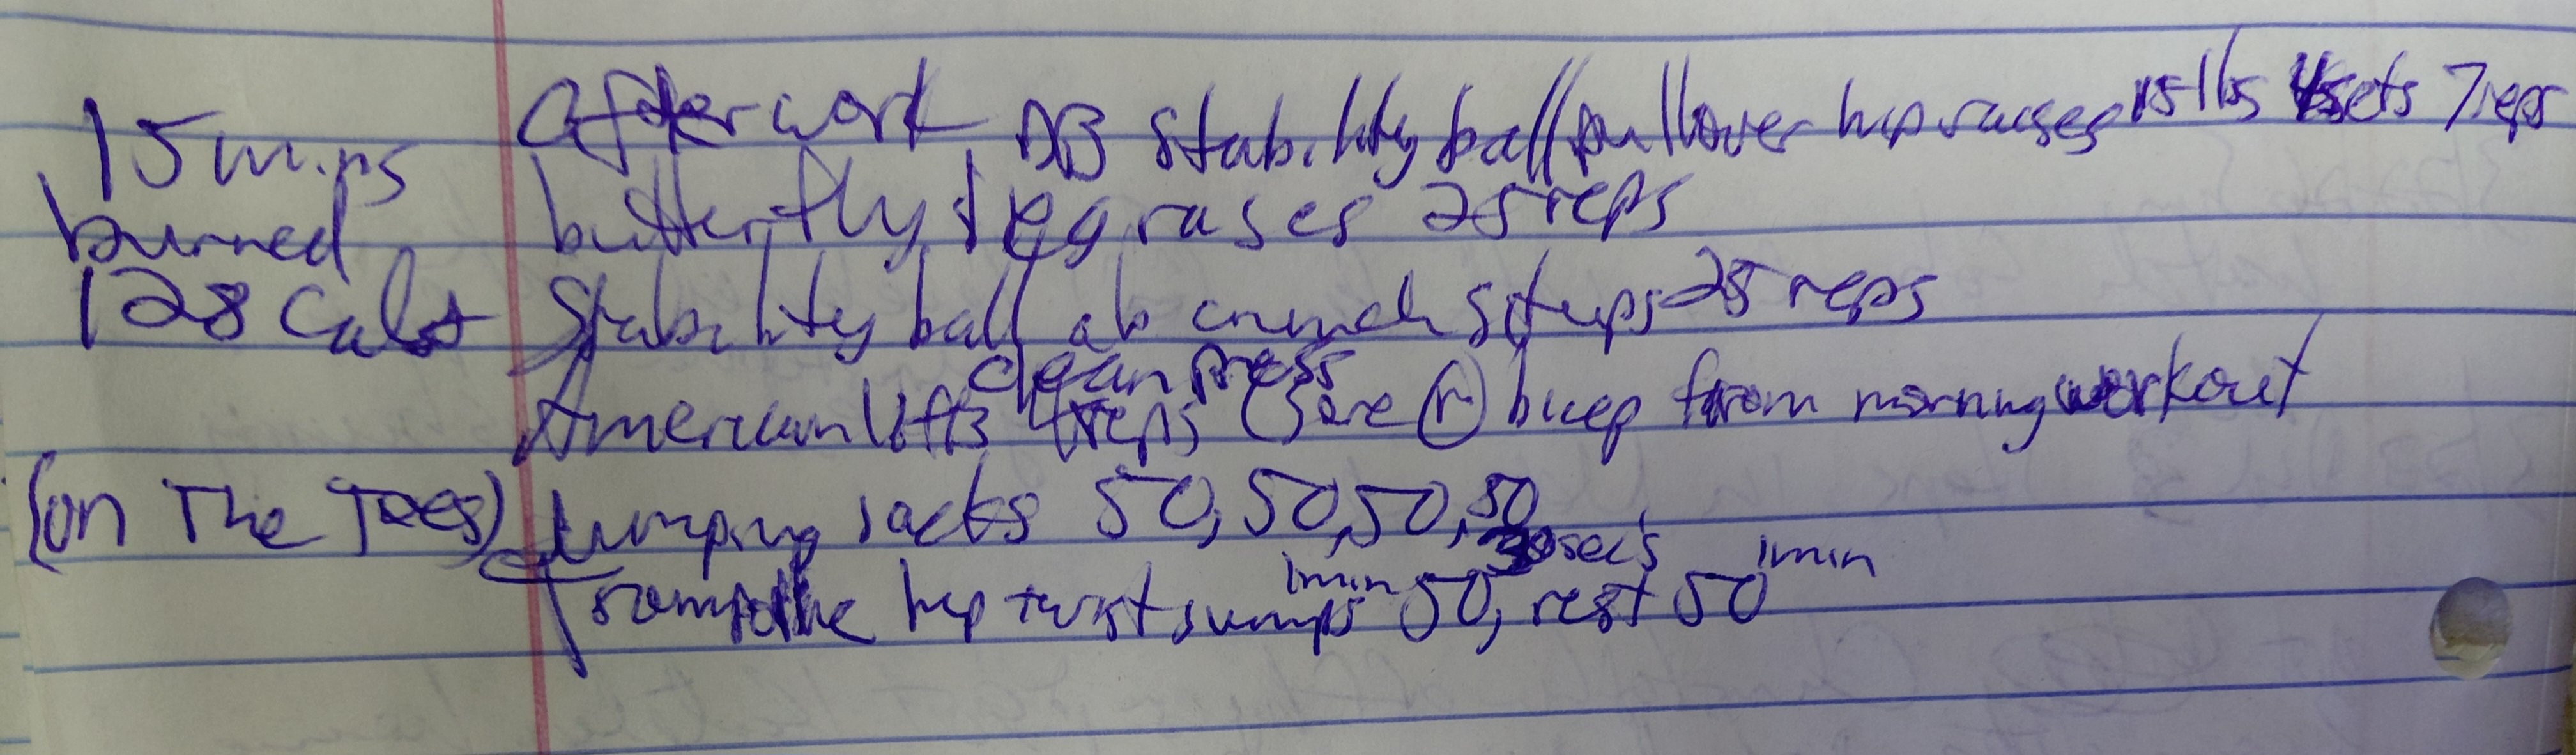 After work DB Stability ball pullover hip raises 15 lbs 4 sets 7 reps
15 mins
butterfly leg rases 25 reps
burned
128 Cals Stability ball ab crunch situps 25 reps
clean press
American lifts 4 reps (Sore (r) bicep from morning workout
(on The Toes) Jumping Jacks 50, 50, 50, 50
1min 30 sec's 1min
hip twist jumps 50, rest 50